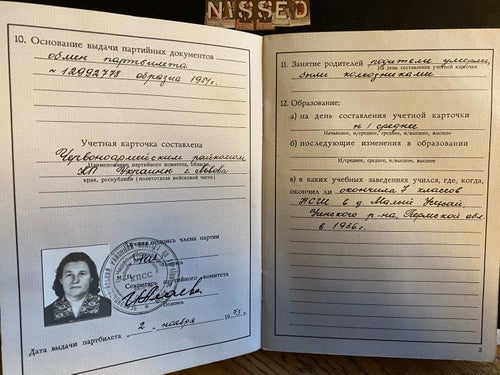 NISSED
10. Основание выдачи партийных документов
обмен партбилета
№ 12992778 образца 1954г.
Учетная карточка составлена
Червоноармейским райкомом
Наименование партийного комитета, области,
КП Украины г. Львова
края, республики (политотдела войсковой части)
Личная подпись члена партии
Подпись
КПСС
Секретарь партийного комитета
Подпись
2 ноября 1973 г.
Дата выдачи партбилета
11. Занятие родителей родители умерли,
На день составления учетной карточки
были колхозниками
12. Образование:
а) на день составления учетной карточки
н/среднее
Начальное, н/среднее, среднее, н/высшее, высшее
б) последующие изменения в образовании
Н/среднее, среднее, н/высшее, высшее
в) в каких учебных заведениях учился, где, когда,
окончил ли окончила 7 классов
НСШ в д. Малый
Уинского р-на, Пермской обл.
в 1936г.
3